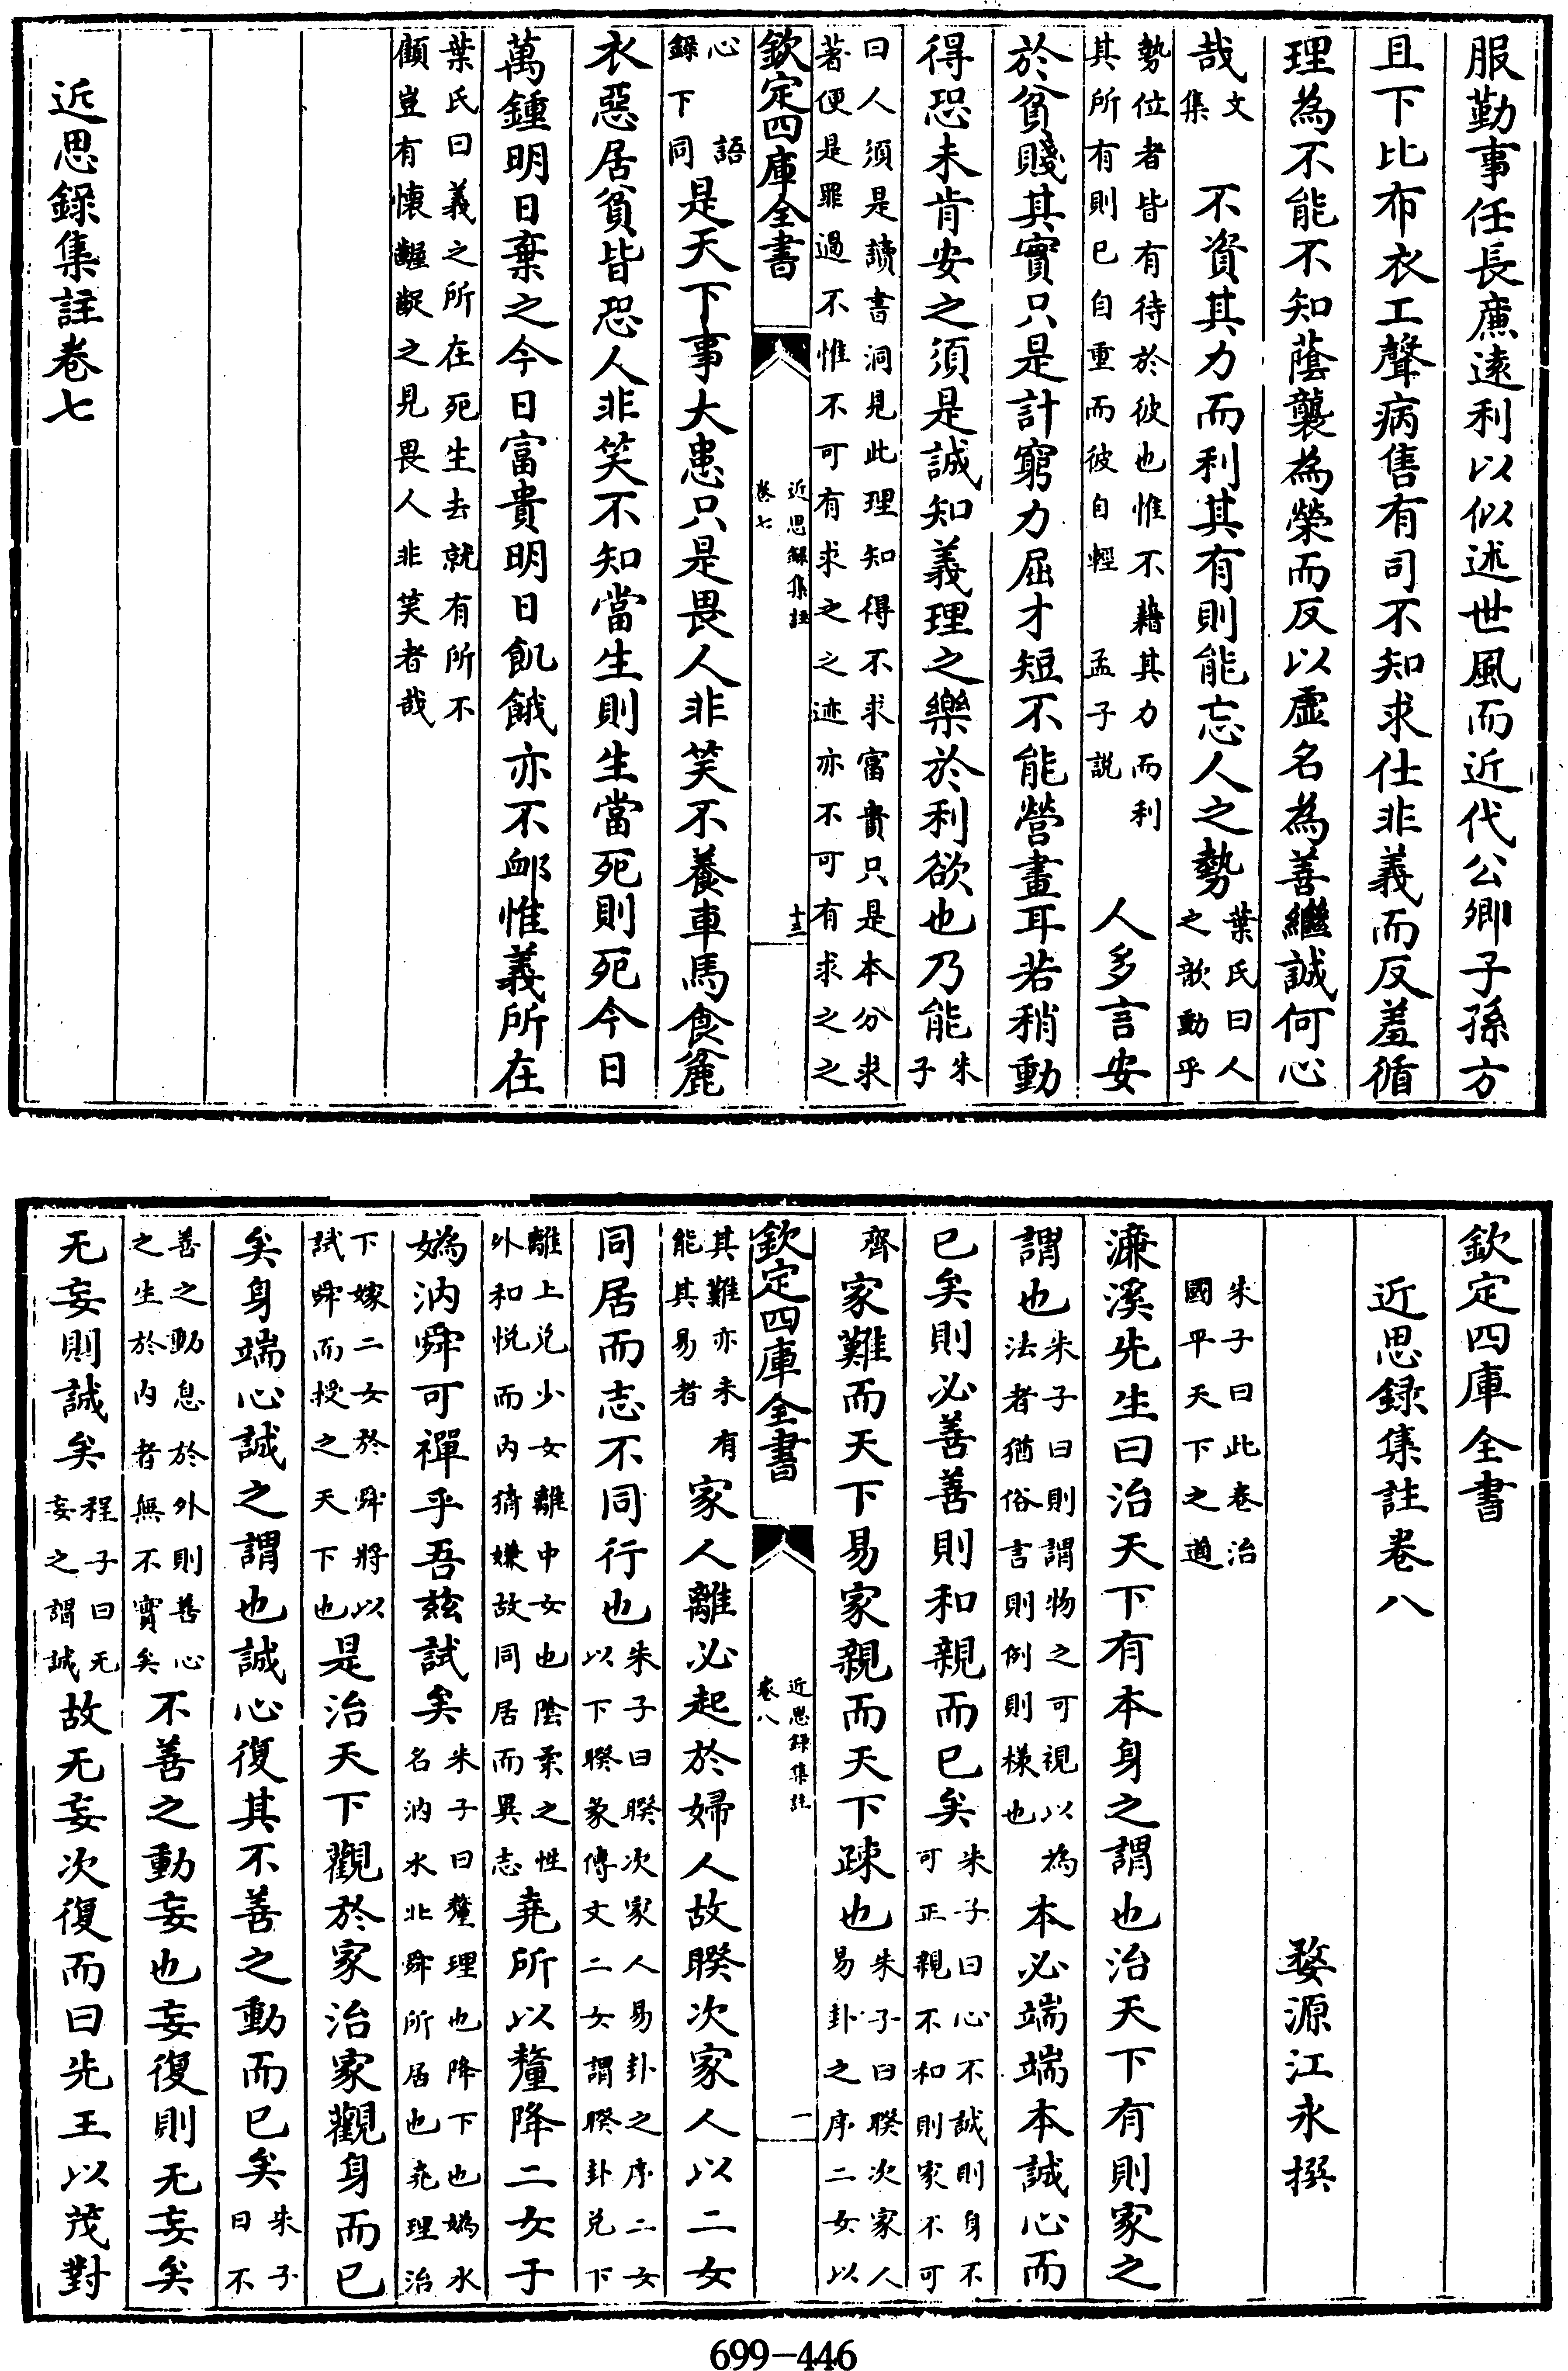 服勤事任長廉遠利以似述世風而近代公卿子孫方
且下比布衣工聲病售有司不知求仕非義而反羞循
理為不能不知蔭襲為榮而反以虛名為善繼誠何心
哉文集 不資其力而利其有則能忘人之勢葉氏曰人之歆動乎
勢位者皆有待於彼也惟不藉其力而利其所有則已自重而彼自輕 孟子說 人多言安
於貧賤其實只是計窮力屈才短不能營畫耳若稍動
得恐未肯安之須是誠知義理之樂於利欲也乃能朱子
曰人須是讀書洞見此理知得不求富貴只是本分求著便是罪過不惟不可有求之之迹亦不可有求之之
欽定四庫全書
近思錄集註
卷七
十三
心 語錄下同是天下事大患只是畏人非笑不養車馬食麄
衣惡居貧皆恐人非笑不知當生則生當死則死今日
萬鍾明日棄之今日富貴明日飢餓亦不卹惟義所在
葉氏曰義之所在死生去就有所不顧豈有懐齷齪之見畏人非笑者哉
近思錄集註卷七
欽定四庫全書
近思録集註卷八
婺源江永撰
朱子曰此卷治國平天下之道
濂溪先生曰治天下有本身之謂也治天下有則家之
謂也朱子曰則謂物之可視以為法者猶俗言則例則様也本必端端本誠心而
已矣則必善善則和親而已矣朱子曰心不誠則身不可正親不和則家不可
齊家難而天下易家親而天下疎也朱子曰睽次家人易卦之序二女以
欽定四庫全書
近思録集註
卷八
一
其難亦未有能其易者家人離必起於婦人故睽次家人以二女
同居而志不同行也朱子曰睽次家人易卦之序二女以下睽彖傳文二女謂睽卦兑下
離上兑少女離中女也陰柔之性外和悦而內猜嫌故同居而異志堯所以釐降二女于
媯汭舜可禪乎吾兹試矣朱子曰釐理也降下也媯水名汭水北舜所居也堯理治
下嫁二女於舜將以試舜而授之天下也是治天下觀於家治家觀身而已
矣身端心誠之謂也誠心復其不善之動而已矣朱子曰不
善之動息於外則善心之生於內者無不實矣不善之動妄也妄復則无妄矣
无妄則誠矣程子曰无妄之謂誠故无妄次復而曰先王以茂對
699-446